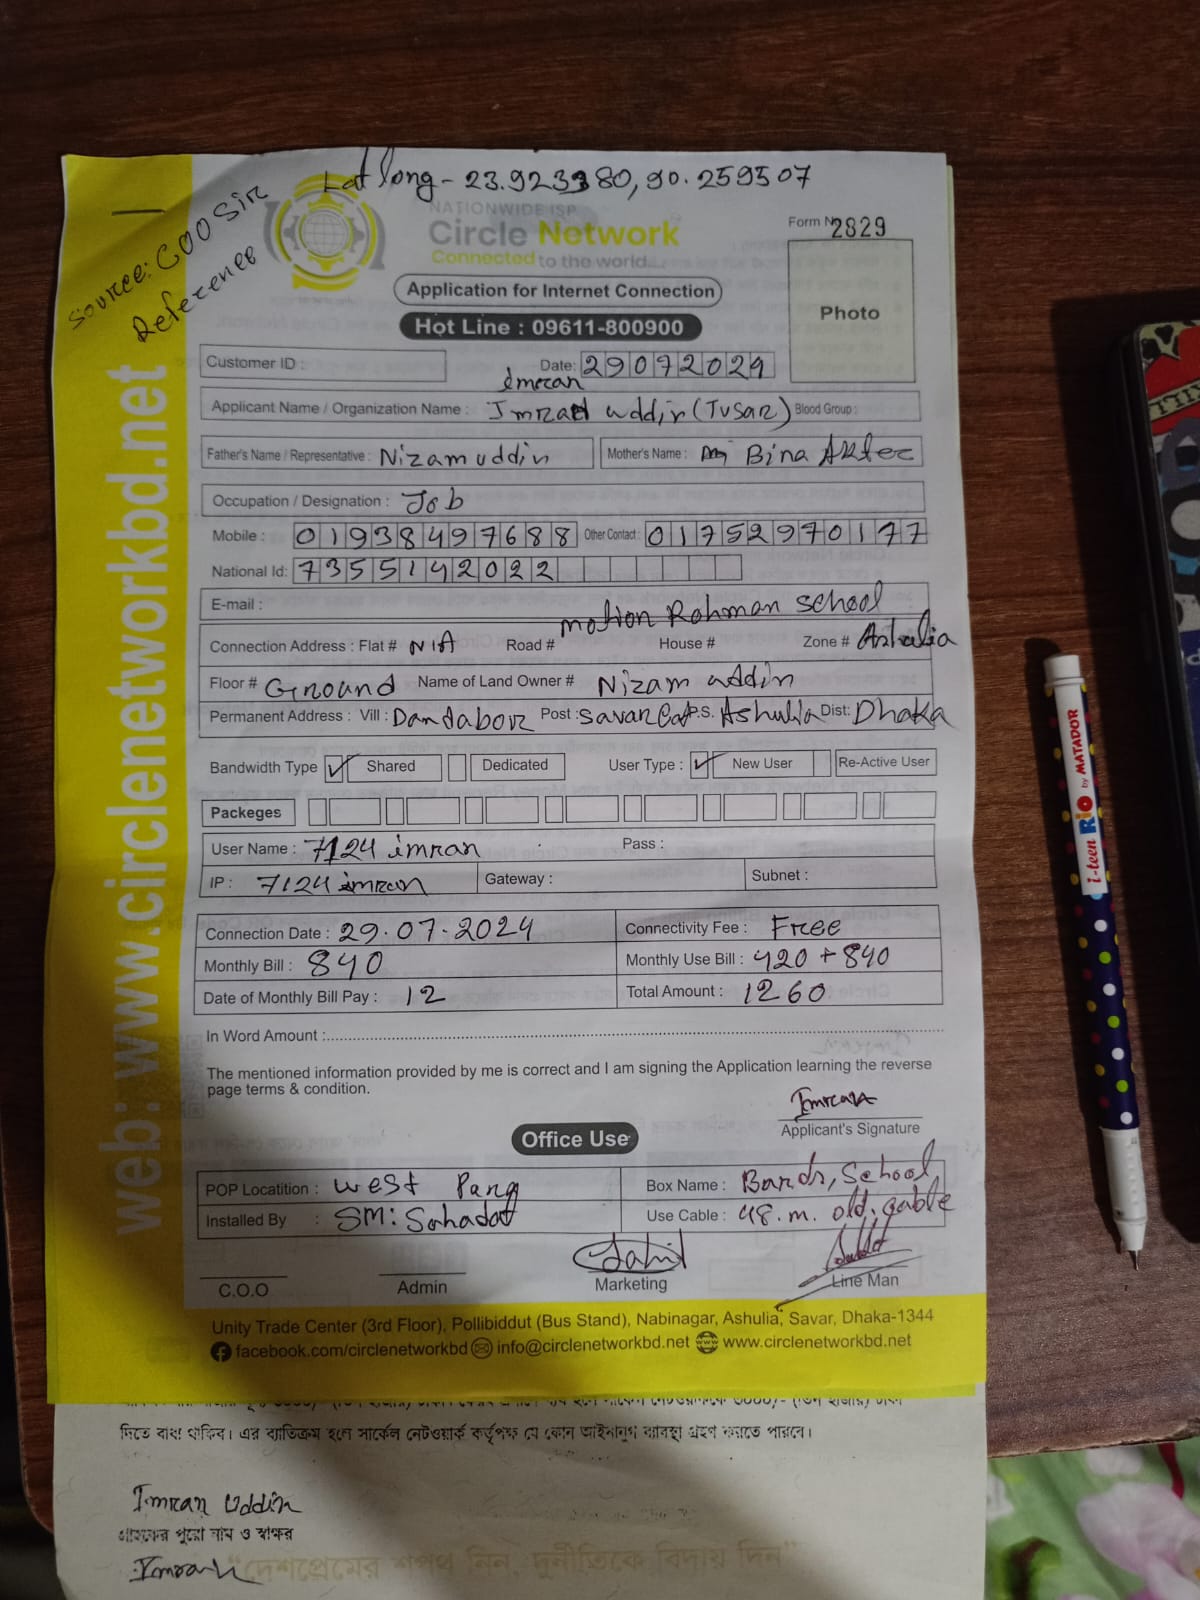 Lat long - 23.923380, 90.259507
Source: COO Sir
Reference
NATIONWIDE ISP
Circle Network
Connected to the world...
Form N 2829
Photo
Application for Internet Connection
Hot Line : 09611-800900
Customer ID :
Date: 29072024
Imran
Applicant Name / Organization Name : Imran uddin (Tusar) Blood Group :
Father's Name / Representative : Nizam uddin Mother's Name : Bina Akter
Occupation / Designation : Job
Mobile : 01938497688 Other Contact : 01752970177
National Id: 7355142022
E-mail :
motion Rahman School
Connection Address : Flat # N/A Road # House # Zone # Ashulia
Floor # Ground Name of Land Owner # Nizam uddin
Permanent Address : Vill : Dandabor Post : Savar Cat P.S. Ashulia Dist: Dhaka
Bandwidth Type ✓ Shared Dedicated User Type : ✓ New User Re-Active User
Packeges
User Name : 7124 imran Pass :
IP : 7124 imran Gateway : Subnet :
Connection Date : 29.07.2024 Connectivity Fee : Free
Monthly Bill : 840 Monthly Use Bill : 420 + 840
Date of Monthly Bill Pay : 12 Total Amount : 1260
In Word Amount :
The mentioned information provided by me is correct and I am signing the Application learning the reverse
page terms & condition.
Imran
Applicant's Signature
Office Use
POP Locatition : West Para Box Name : School
Installed By : SM: Sahadat Use Cable : 48.m. old. cable
C.O.O Admin Marketing Line Man
Unity Trade Center (3rd Floor), Pollibiddut (Bus Stand), Nabinagar, Ashulia, Savar, Dhaka-1344
facebook.com/circlenetworkbd info@circlenetworkbd.net www.circlenetworkbd.net
web: www.circlenetworkbd.net
দিতে বাধ্য থাকিব। এর ব্যতিক্রম হলে সার্কেল নেটওয়ার্ক কর্তৃপক্ষ যে কোন আইনানুগ ব্যবস্থা গ্রহণ করতে পারবে।
Imran Uddin
গ্রাহকের পুরো নাম ও স্বাক্ষর
Imran
"দেশপ্রেমের শপথ নিন, দুর্নীতিকে বিদায় দিন"
i-teen RiO by MATADOR